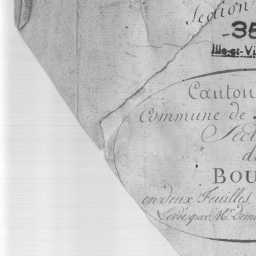 Section
35
Ille-et-Vi
Canton
Commune de
Sect
d
BOU
en deux Feuilles
Levée par Mr.